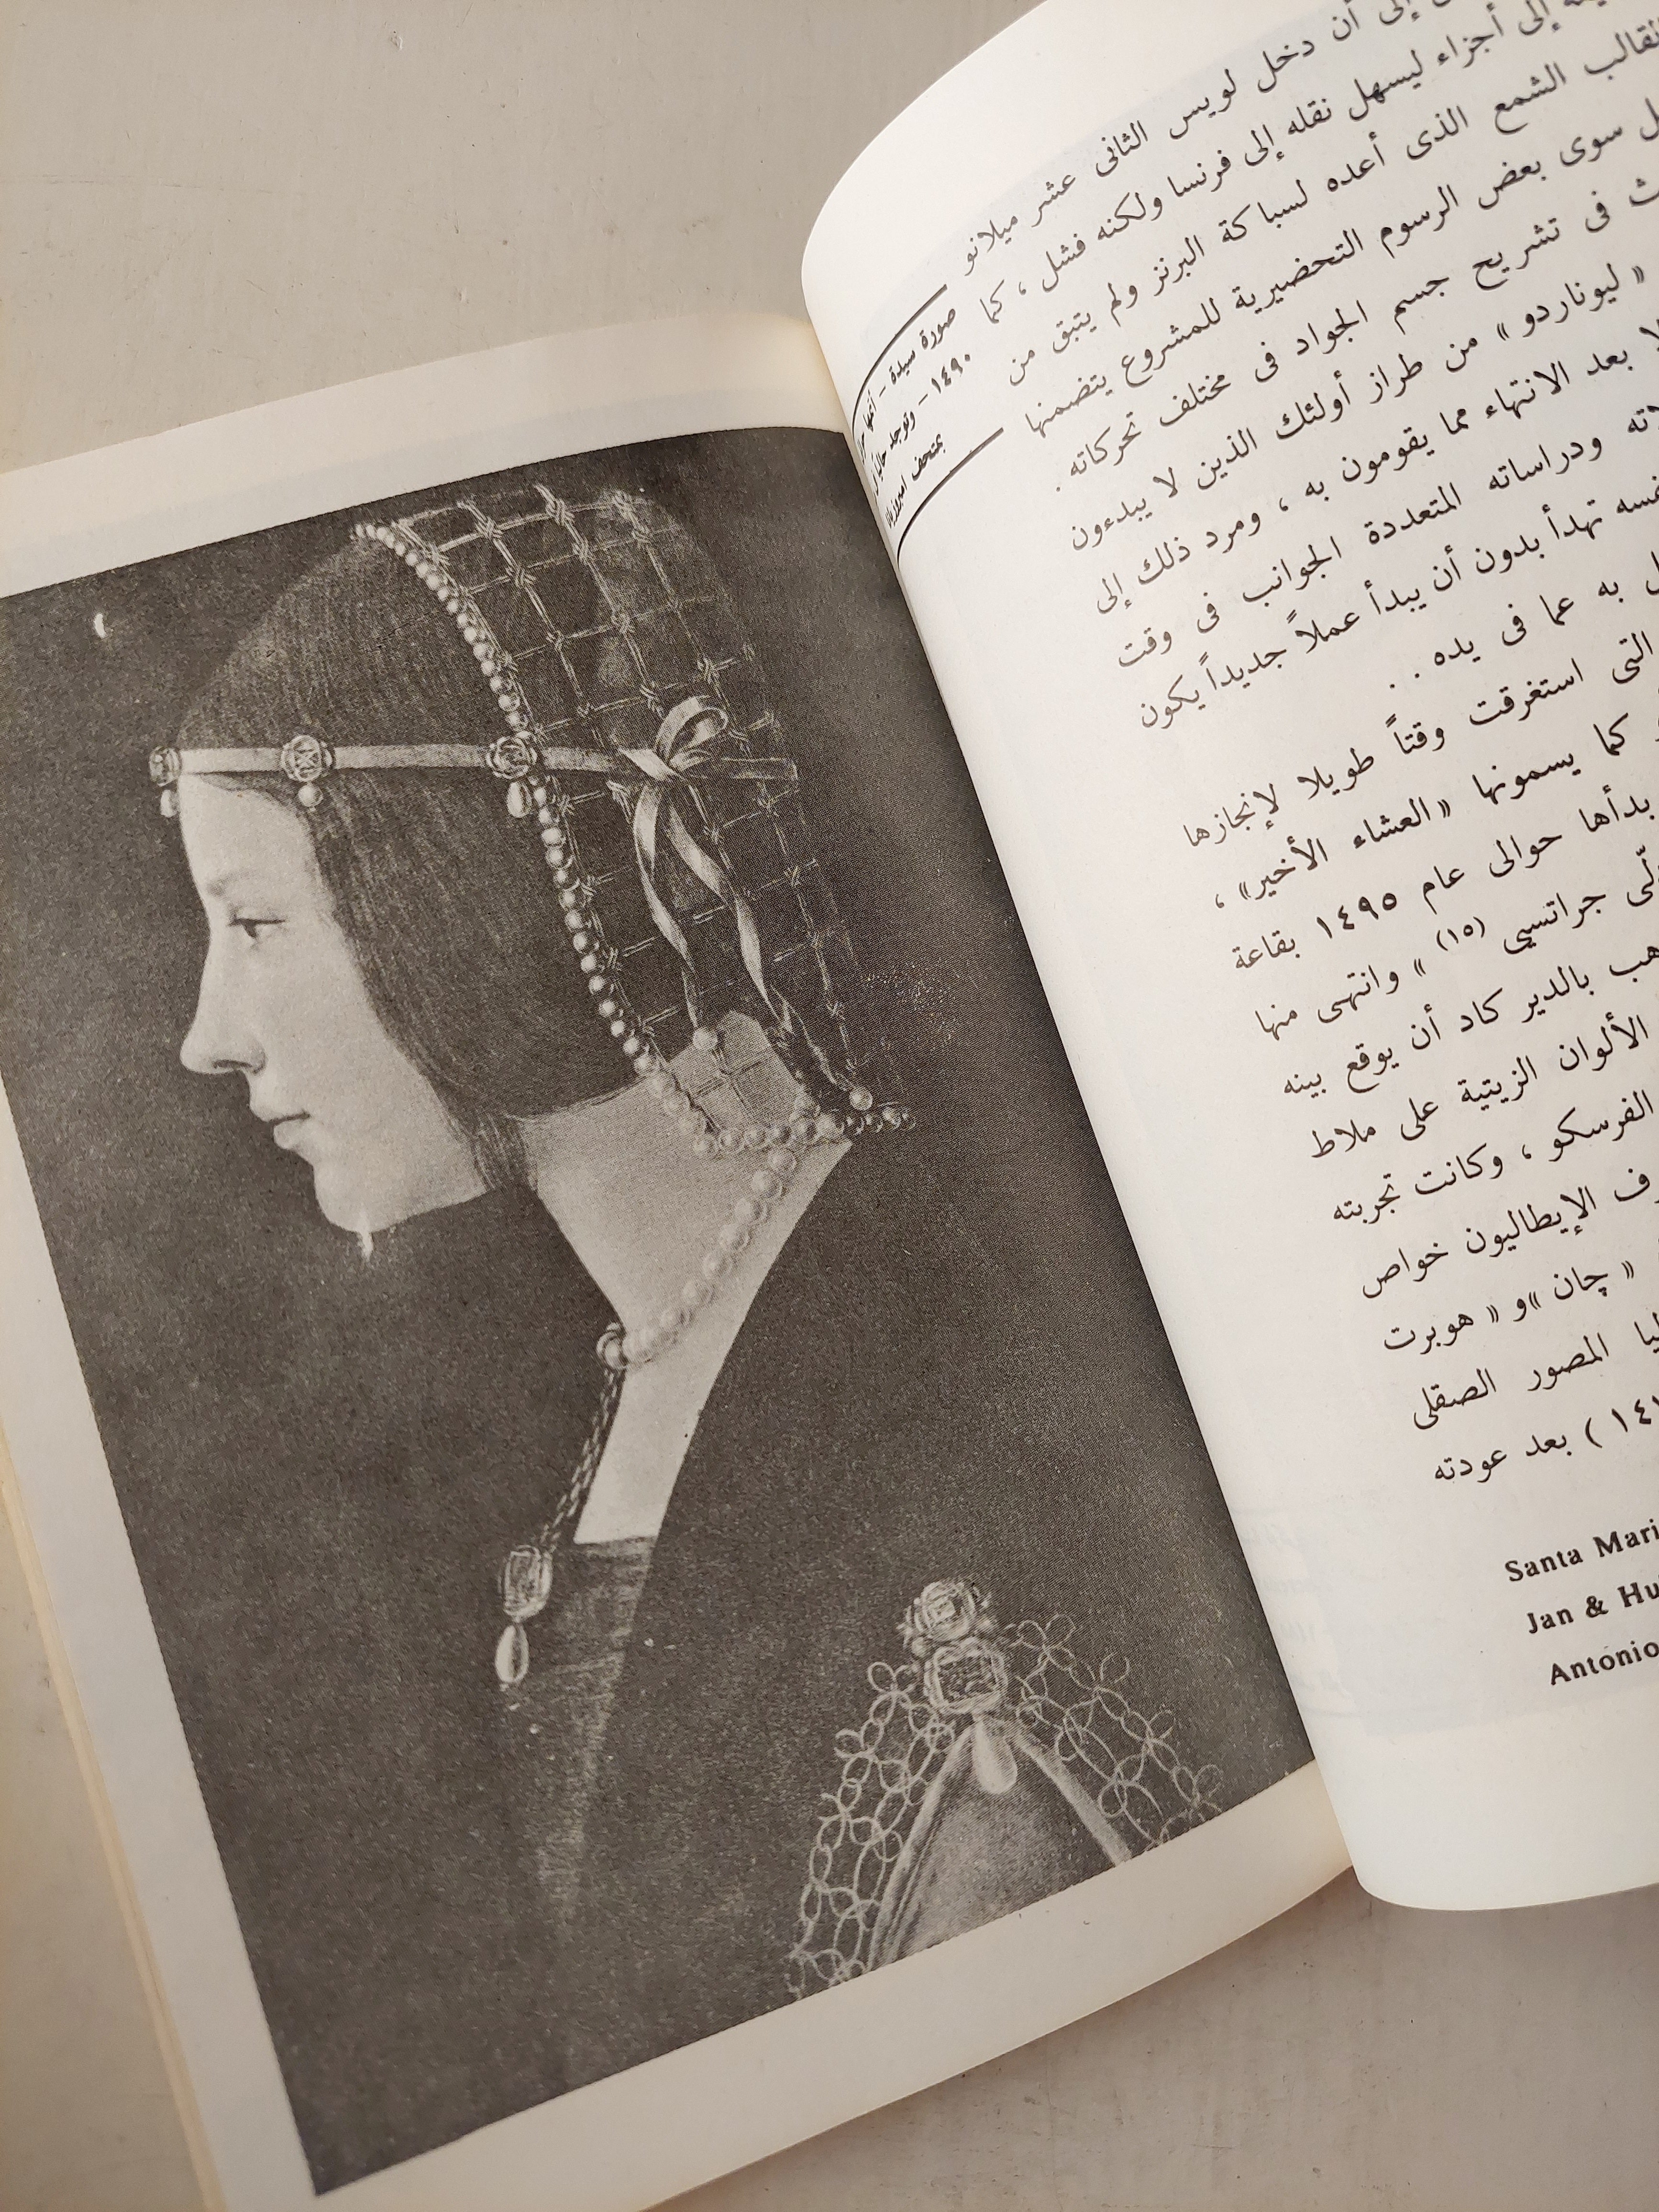 إلى أن دخل لويس الثانى عشر ميلانو
إلى أجزاء ليسهل نقله إلى فرنسا ولكنه فشل ، كما
الشمع الذى أعده لسباكة البرنز ولم يتبق من
سوى بعض الرسوم التحضيرية للمشروع يتضمنها
فى تشريح جسم الجواد فى مختلف تحركاته .
« ليوناردو » من طراز أولئك الذين لا يبدءون
بعد الانتهاء مما يقومون به ، ومرد ذلك إلى
ودراساته المتعددة الجوانب فى وقت
تهدأ بدون أن يبدأ عملاً جديداً يكون
به عما فى يده . .
التى استغرقت وقتاً طويلا لإنجازها
كما يسمونها « العشاء الأخير » ،
بدأها حوالى عام ١٤٩٥ بقاعة
جراتسيى (١٥) » وانتهى منها
بالدير كاد أن يوقع بينه
الألوان الزيتية على ملاط
الفرسكو ، وكانت تجربته
الإيطاليون خواص
« چان » و « هوبرت
المصور الصقلى
) بعد عودته
Santa Mari
Jan & Hu
Antonio
صورة سيدة - أتمها
١٤٩٠ - وتوجد حاليًا
بمتحف امبروزيانا